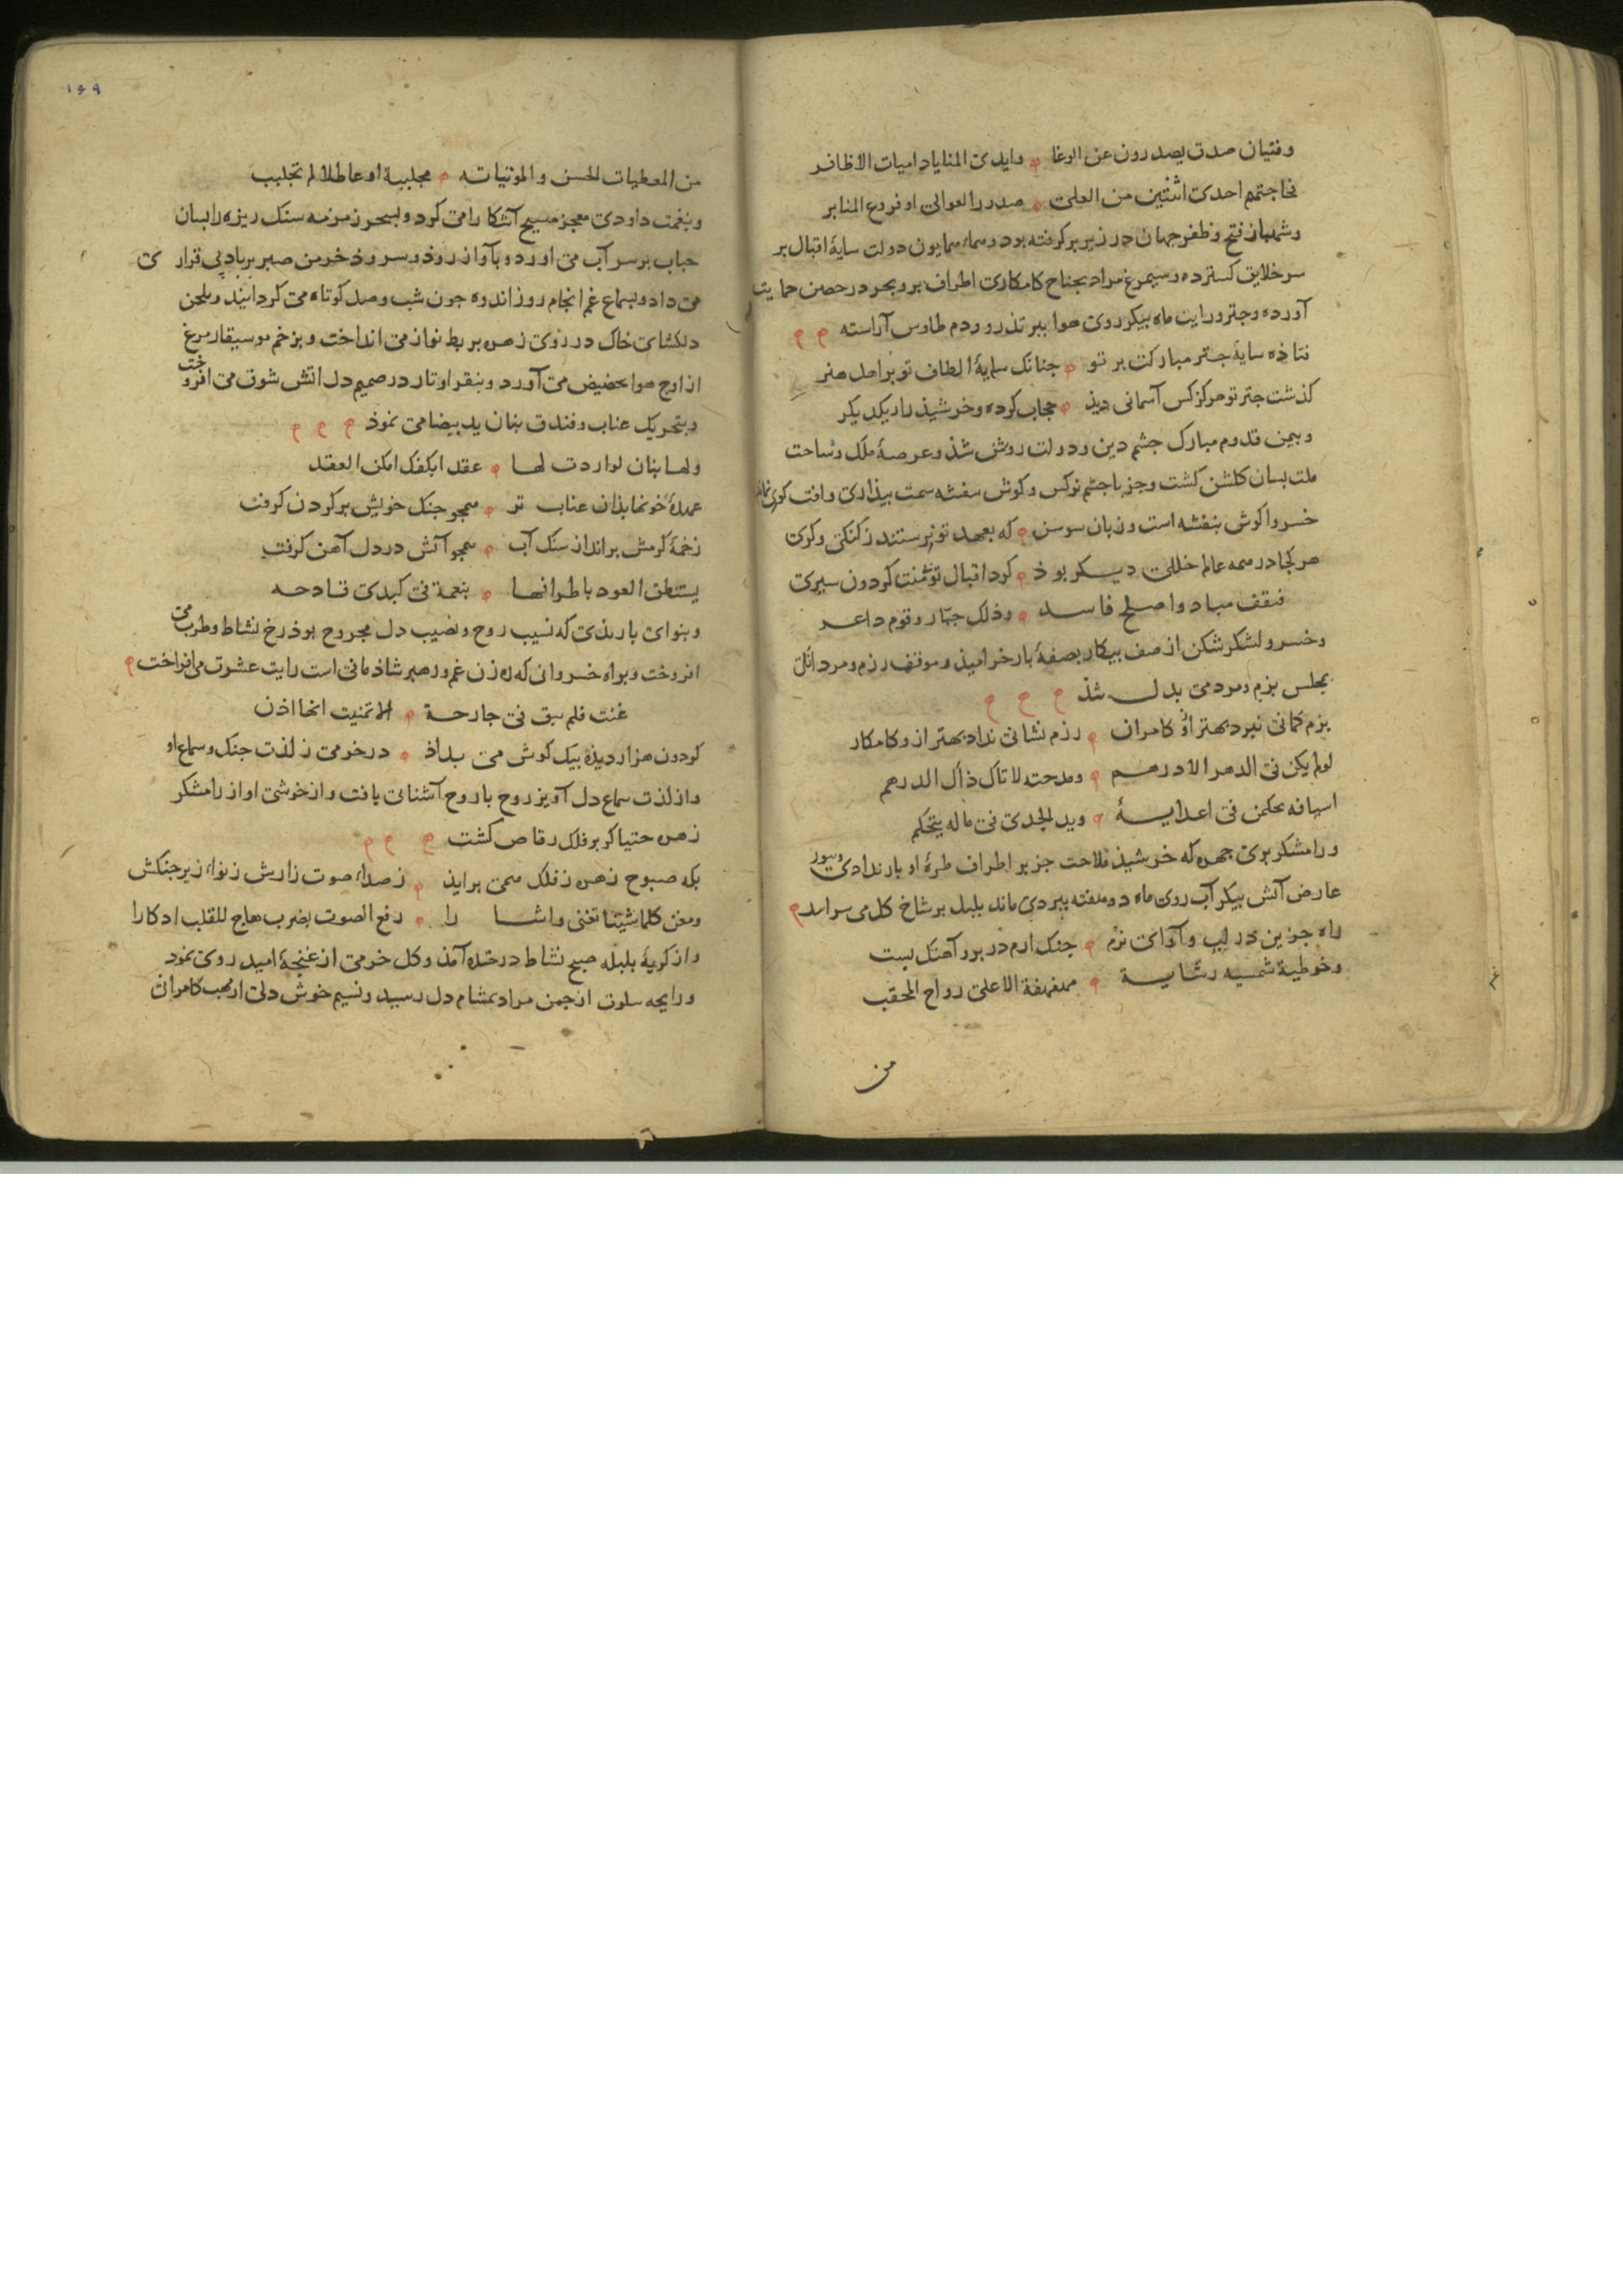 وفتیان صدق یصدرون عن الوغا ه وایدی المنایا دامیات الاظافر
احدی اثنتین من العلی ه صدر العوالی او فروع المنابر
وشهباز فتح وظفر جهان در زیر پر گرفته بود وهماء همایون دولت سایهٔ اقبال بر
سر خلایق گسترده وسیمرغ مراد بجناح کامکاری اطراف بر و بحر در حصن حمایت
آورده وچتر ورایت ماه پیکر روی هوا ببر تذرو ودم طاوس آراسته
فتاذه سایهٔ چتر مبارکت بر تو ه چنانک سایهٔ الطاف تو بر اهل هنر
گذشت چتر تو هرگز کس آسمانی دیذ ه حجاب کرده وخرشیذ را دیکر
وبیمن قدوم مبارک چشم دین ودولت روشن شذ وعرصهٔ ملک وساحت
ملت بسان گلشن گشت وجز با چشم نرکس وکوش بنفشه سمت بیذاری وافت کری نماند
خسروا کوش بنفشه است وزبان سوسن ه که بعهد تو برستند ز کنکی وکری
هر کجا در همه عالم خللی دیکر بوذ ه کرد اقبال تو کردون سپری
فسقف مباد واصلح فاسد ه وذلک جبار وقوم داعر
وخسرو لشکر شکن از صف پیکار بصفهٔ بار خرامیذ وموقف رزم ومردانگی
بمجلس بزم ومردمی بدل شذ
بزم کمانی نبرد بهتر ازو کامران ه رزم نشانی نداد بهتر ازو کامکار
لو لم یکن فی الدهر الا درهم ه ومدحته لاتاک ذاک الدرهم
اسیافه یحکمن فی اعدایه ه وید الجدی فی ماله یتحکم
ورامشکر پری چهره که خرشیذ ملاحت جز بر اطراف طرهٔ او بار ندادی وبر
عارض آتش پیکر آب روی ماه دو هفته ببردی مانند بلبل بر شاخ گل می سراید
راه حزین در لب وآوای نرم ه چنک ارم در بر و آهنک پست
وخوطیة شمسیة رشایة ه مهفهفة الاعلی رداح المحقب
من
۱۶۹
من المعطیات الحسن والموتیاته ه مجلببة او عاطلا لم تجلبب
وبنغمت داودی معجز مسیح آشکارا می کرد وبسحر زمزمه سنک ریزه را بسان
حباب بر سر آب می آورد وبآواز روذ وسروذ خرمن صبر بر باد بی قراری
می داد وبسماع غم انجام روز اندوه چون شب وصل کوتاه می کردانید وبلحن
دلکشای خاک در روی زهره بربط نواز می انداخت وبزخم موسیقار مرغ
از اوج هوا بحضیض می آورد وبنقر اوتار در صمیم دل آتش شوق می افروخت
وبتحریک عناب وفندق بنان ید بیضا می نموذ
ولها بنان لو اردت لها ه عقدا بکفک امکن العقد
عهدهٔ خونها بذان عناب تر ه همچو چنک خویش بر کردن کرفت
زخمهٔ کرمش براند از سنک آب ه همچو آتش در دل آهن کرفت
یستنطق العود باطرافها ه بنغمة فی کبدی قادحه
وبنوای باربذی که نسیب روح ونصیب دل مجروح بوذ رخ نشاط وطرب می
افروخت وبراه خسروانی که ره زن غم ورهبر شاذمانی است رایت عشرت می افراخت
غنت فلم تبق فی جارحة ه الا تمنیت انها اذن
کردون هزار دیذه بیک کوش می بداذ ه در خرمی ز لذت چنک وسماع او
واز لذت سماع دل آویز روح با روح آشنائی یافت واز خوشی آواز رامشکر
زهره خنیاکر بر فلک رقاص کشت
بکه صبوح زهره ز فلک همی برایذ ه ز صداء صوت زارش ز نواء زیر چنکش
ومغن کلما شیتا تغنی واشارا ه رفع الصوت بضرب هاج للقلب ادکارا
واز کریهٔ بلبله صبح نشاط در خنده آمذ وکل خرمی از غنچهٔ امید روی نمود
ورایحه سلوت از چمن مراد بمشام دل رسید ونسیم خوش دلی از مهب کامرانی